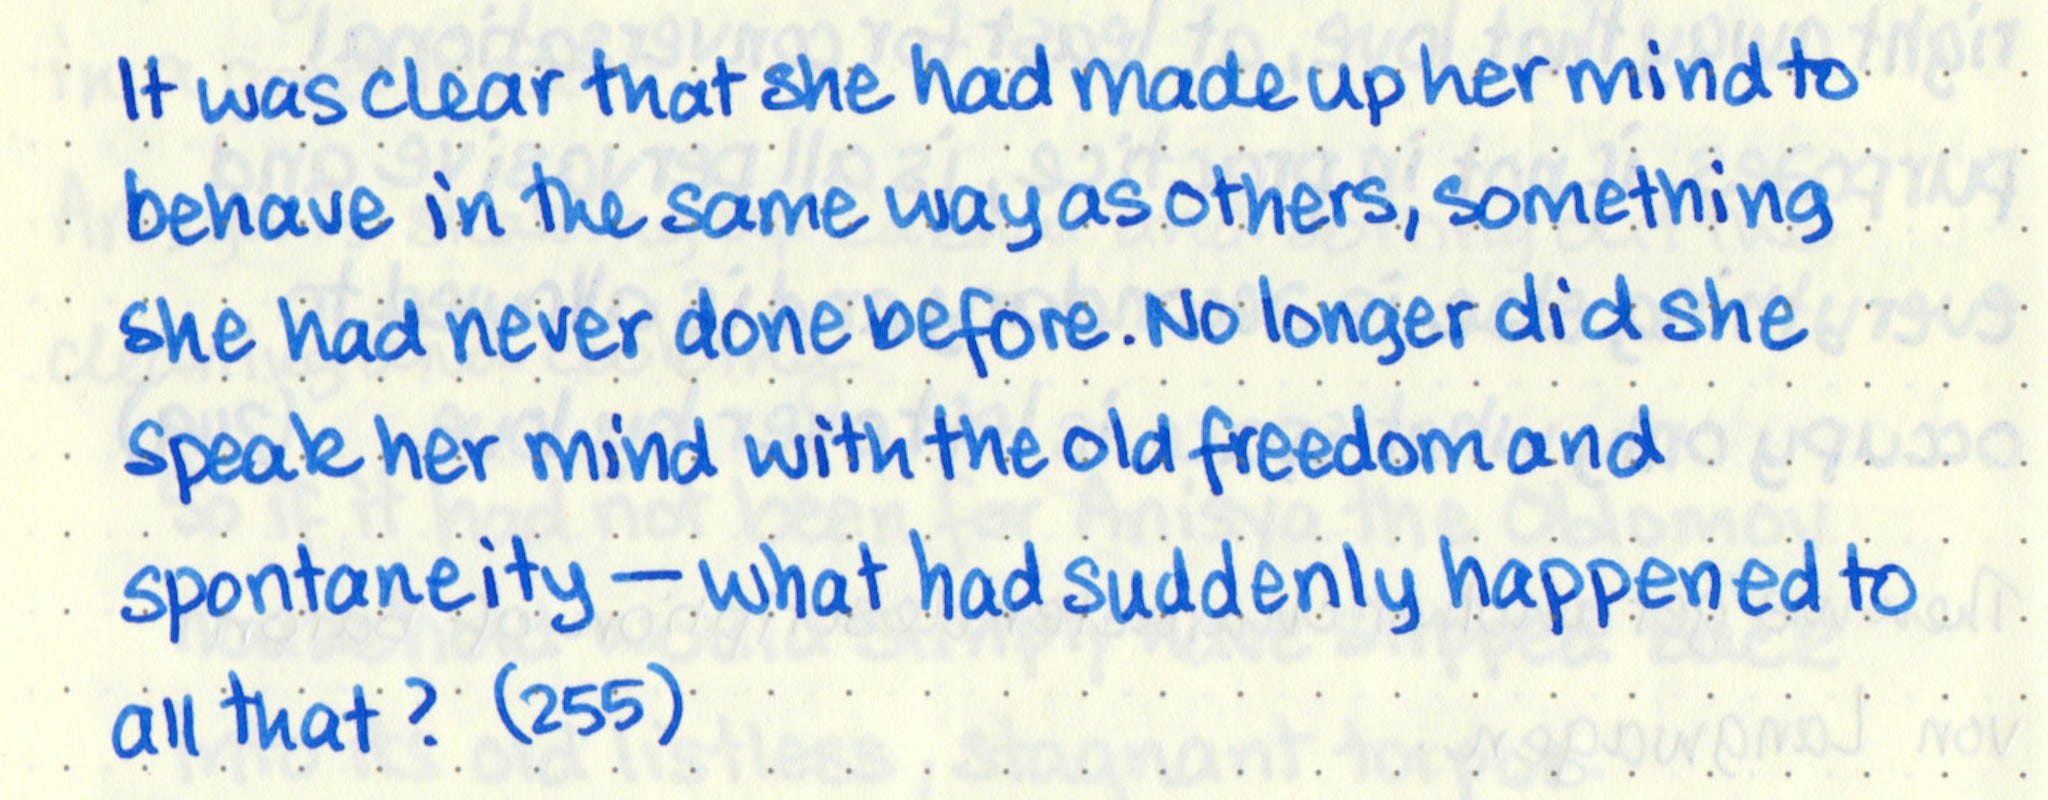 It was clear that she had made up her mind to
behave in the same way as others, something
she had never done before. No longer did she
speak her mind with the old freedom and
spontaneity — what had suddenly happened to
all that? (255)